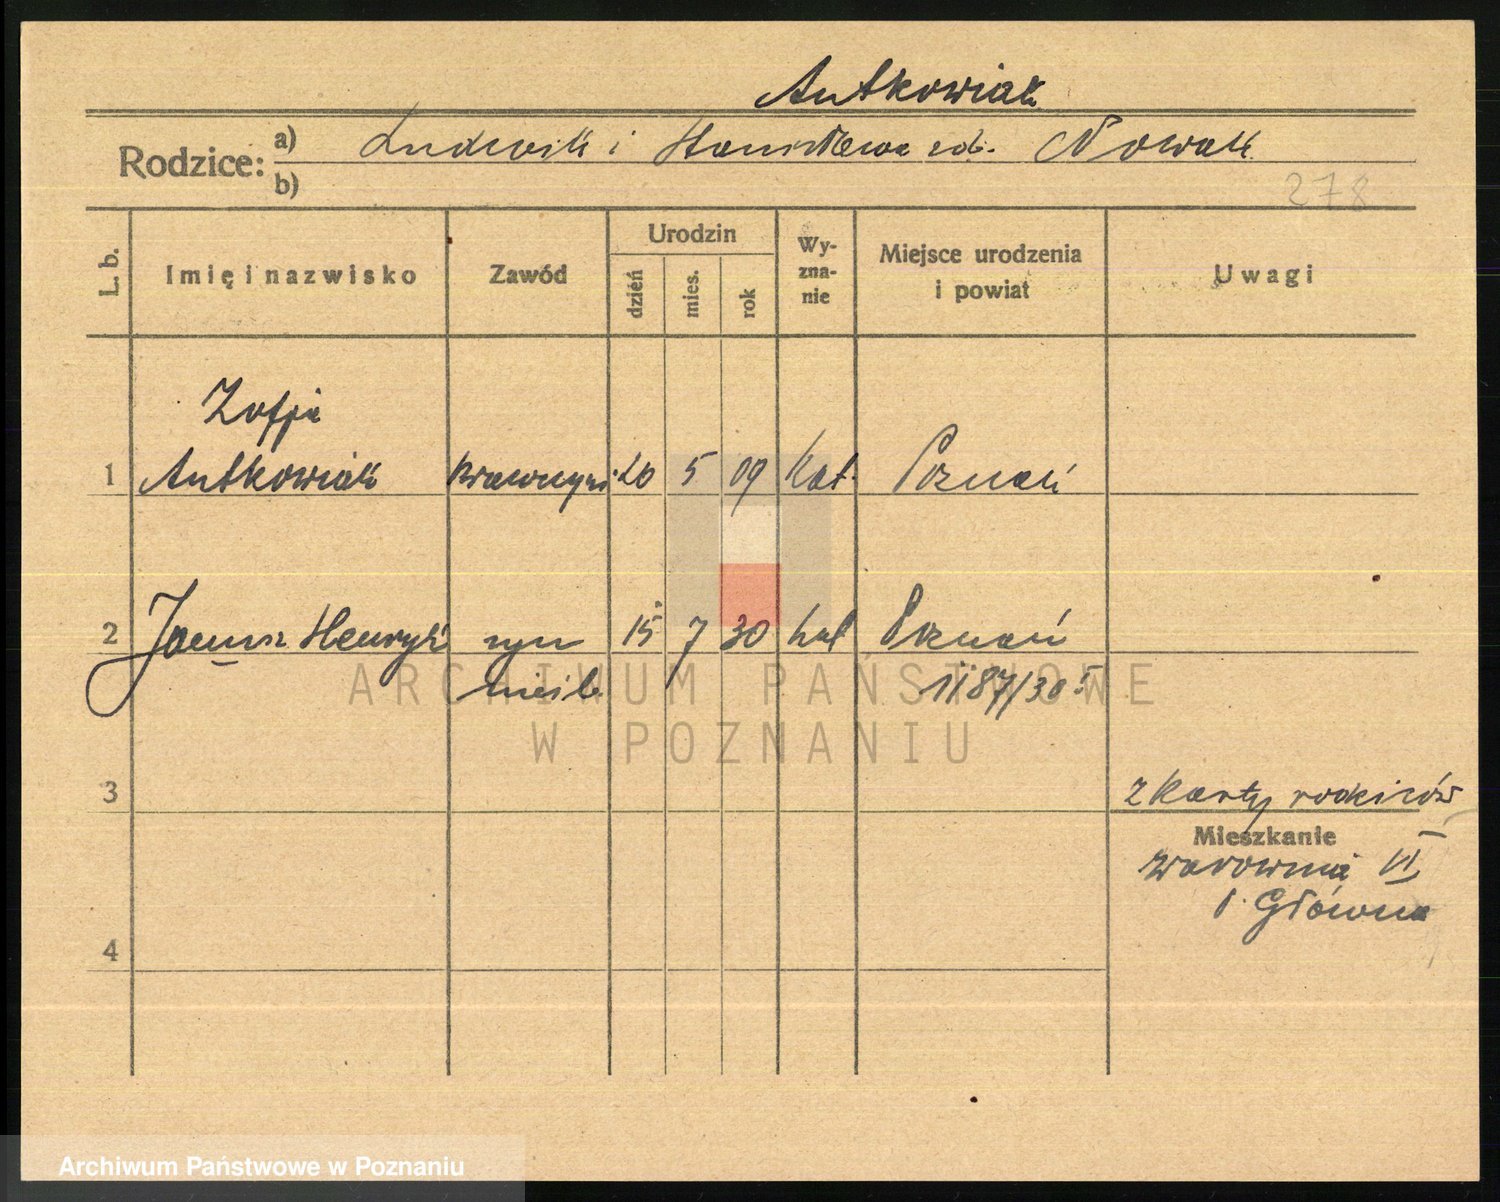 Antkowiak
Rodzice:
a) Ludwik i Stanisława zd. Nowak
b)
278
L. b.
Imię i nazwisko
Zawód
Urodzin
dzień
mies.
rok
Wy-
zna-
nie
Miejsce urodzenia
i powiat
Uwagi
Zofja
1 Antkowiak krawczyni 20 5 09 kat. Poznań
2 Janusz Henryk syn 15 7 30 kat Poznań
nieśl. 1187/30
ARCHIWUM PAŃSTWOWE
W POZNANIU
3
z karty rodziców
Mieszkanie
Warownia VI
Główna
4
Archiwum Państwowe w Poznaniu